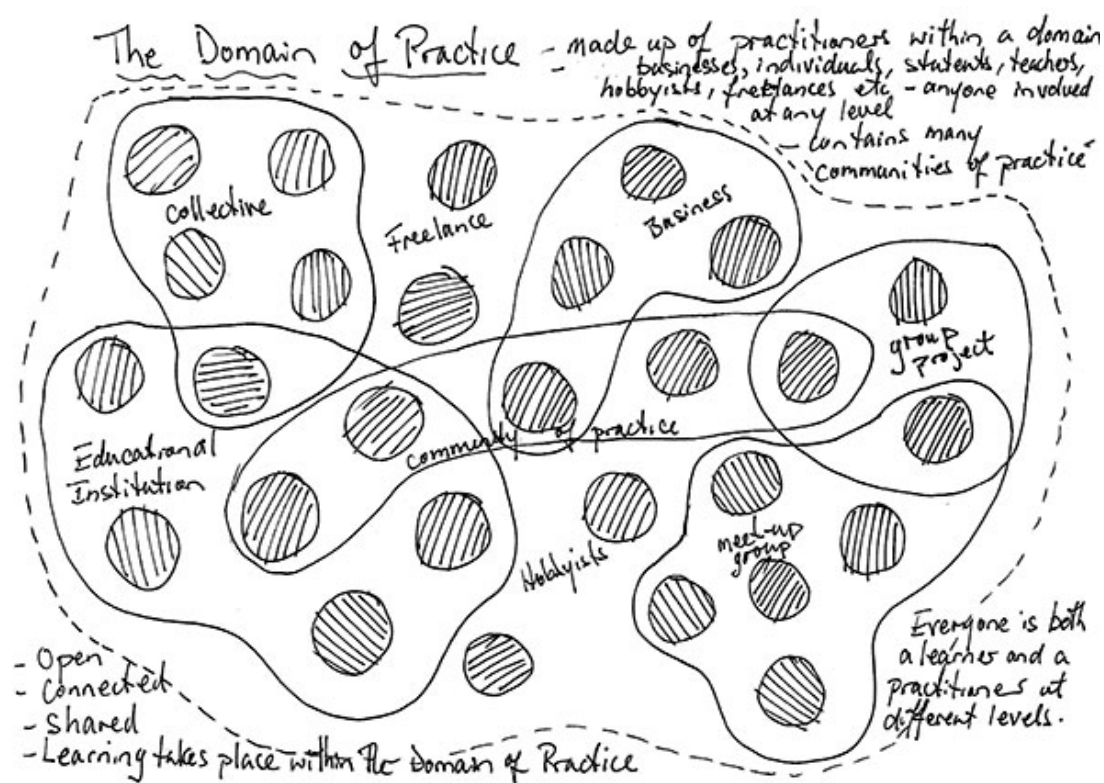 The Domain of Practice - made up of practitioners within a domain
businesses, individuals, students, teachers,
hobbyists, freelances etc - anyone involved
at any level
- contains many
communities of practice
collective
Freelance
Business
group
project
Educational
Institution
community of practice
meet-up
group
Hobbyists
Everyone is both
a learner and a
practitioners at
different levels.
- Open
- Connected
- Shared
- Learning takes place within the Domain of Practice